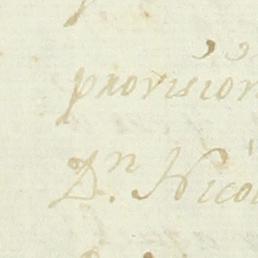 provisión
D.n Nicol